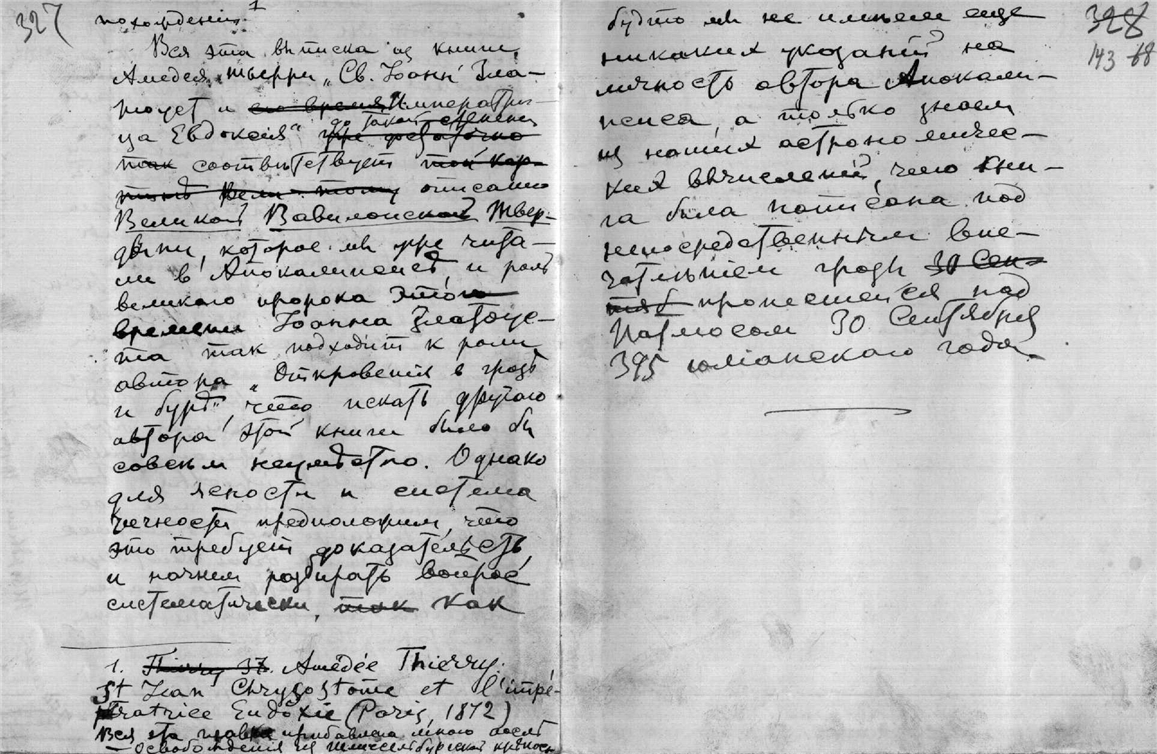 327
похожденій.¹
Вся эта выписка из книги
Амедея Тьерри „Св. Іоанн Зла-
тоуст и его время Императри-
ца Евдоксія" до такой степени
уже достаточно
так соответствует той кар-
описанію
Великой Вавилонской Твер-
дыни, которое мы уже чита-
ли в Апокалипсисе и роль
великаго пророка этого
времени Іоанна Златоус-
та так подходит к роли
автора „Откровенія в грозе
и буре", что искать другого
автора этой книги было бы
совсем неуместно. Однако
для ясности и система
тичности предположим, что
это требует доказательств,
и начнем разбирать вопрос
систематически, так как
1. Thierry Amédée Thierry.
St Jean Chrysostome et l'impé-
ratrice Eudoxie (Paris, 1872)
Вся эта глава прибавлена мною после
освобожденія из Шлиссельбургской крепости
328
143 68
будто мы не имеем еще
никаких указаній на
личность автора Апокали-
псиса, а только знаем
из наших астрономичес-
ких вычислений, что кни-
га была написана под
непосредственным впе-
чатленіем грозы 30 Сен-
тяб пронесшейся над
Патмосом 30 Сентября
395 юліанскаго года.